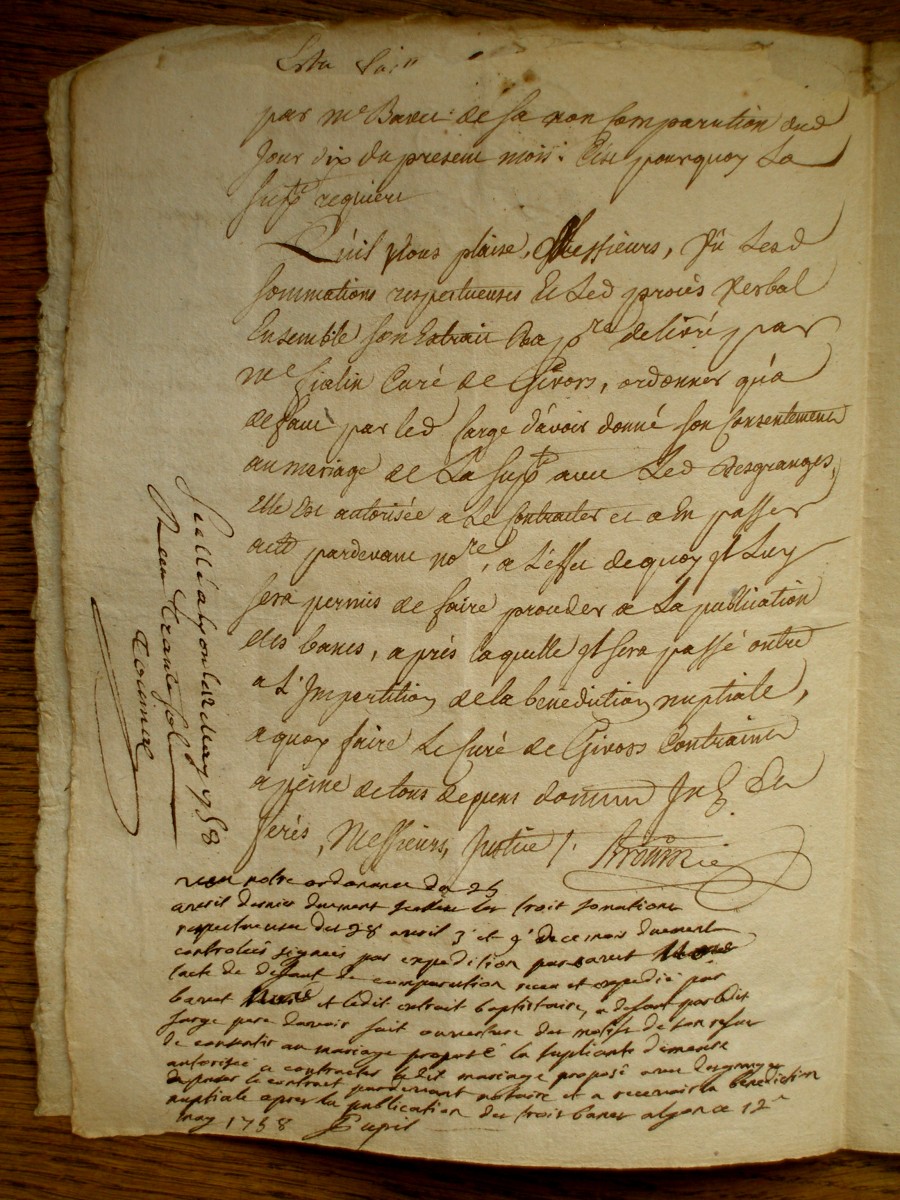 par me Baret de sa non comparution dud
Jour dix du present mois. C'est pourquoy La
supte requiert
Qu'il Vous plaise, Messieurs, Vû Lesd
sommations respectueuses Et Led procès Verbal
Ensemble son Extrait delivré par
me Curé de Givors, ordonner qu'a
defaut par led Sarge d'avoir donné son Consentement
au mariage de La supte avec Led Desgranges,
Elle est autorisée a Le Contracter et a En passer
acte pardevant nore, a L'effet de quoy Il Luy
sera permis de faire proceder a La publication
des bancs, après laquelle Il sera passé outre
a L'Impartition de la benediction nuptiale,
a quoy faire Le Curé de Givors Contraint
a peine de tous depens dommages Int. Et
ferés, Messieurs, Justice /.
Scellé a Lyon le 12 May 1758
Reçu trente sols
veu notre ordonnance du 25
avril dernier duement scellée les trois somations
respectueuses des 28 avril 3e et 9e de ce mois duement
controlées signées par expedition par Baret
l'acte de deffaut de comparution receu et expedié par
baret et ledit extrait baptistaire, a defaut par ledit
Sarge pere d'avoir fait ouverture des motifs de son refus
de consentir au mariage proposé la supliante demeure
autorisée a contracter ledit mariage proposé avec Desgranges
d'en passer le contract pardevant notaire et a recevoir la benediction
nuptiale apres la publication des trois bancs a lyon ce 12e
may 1758 Pupil